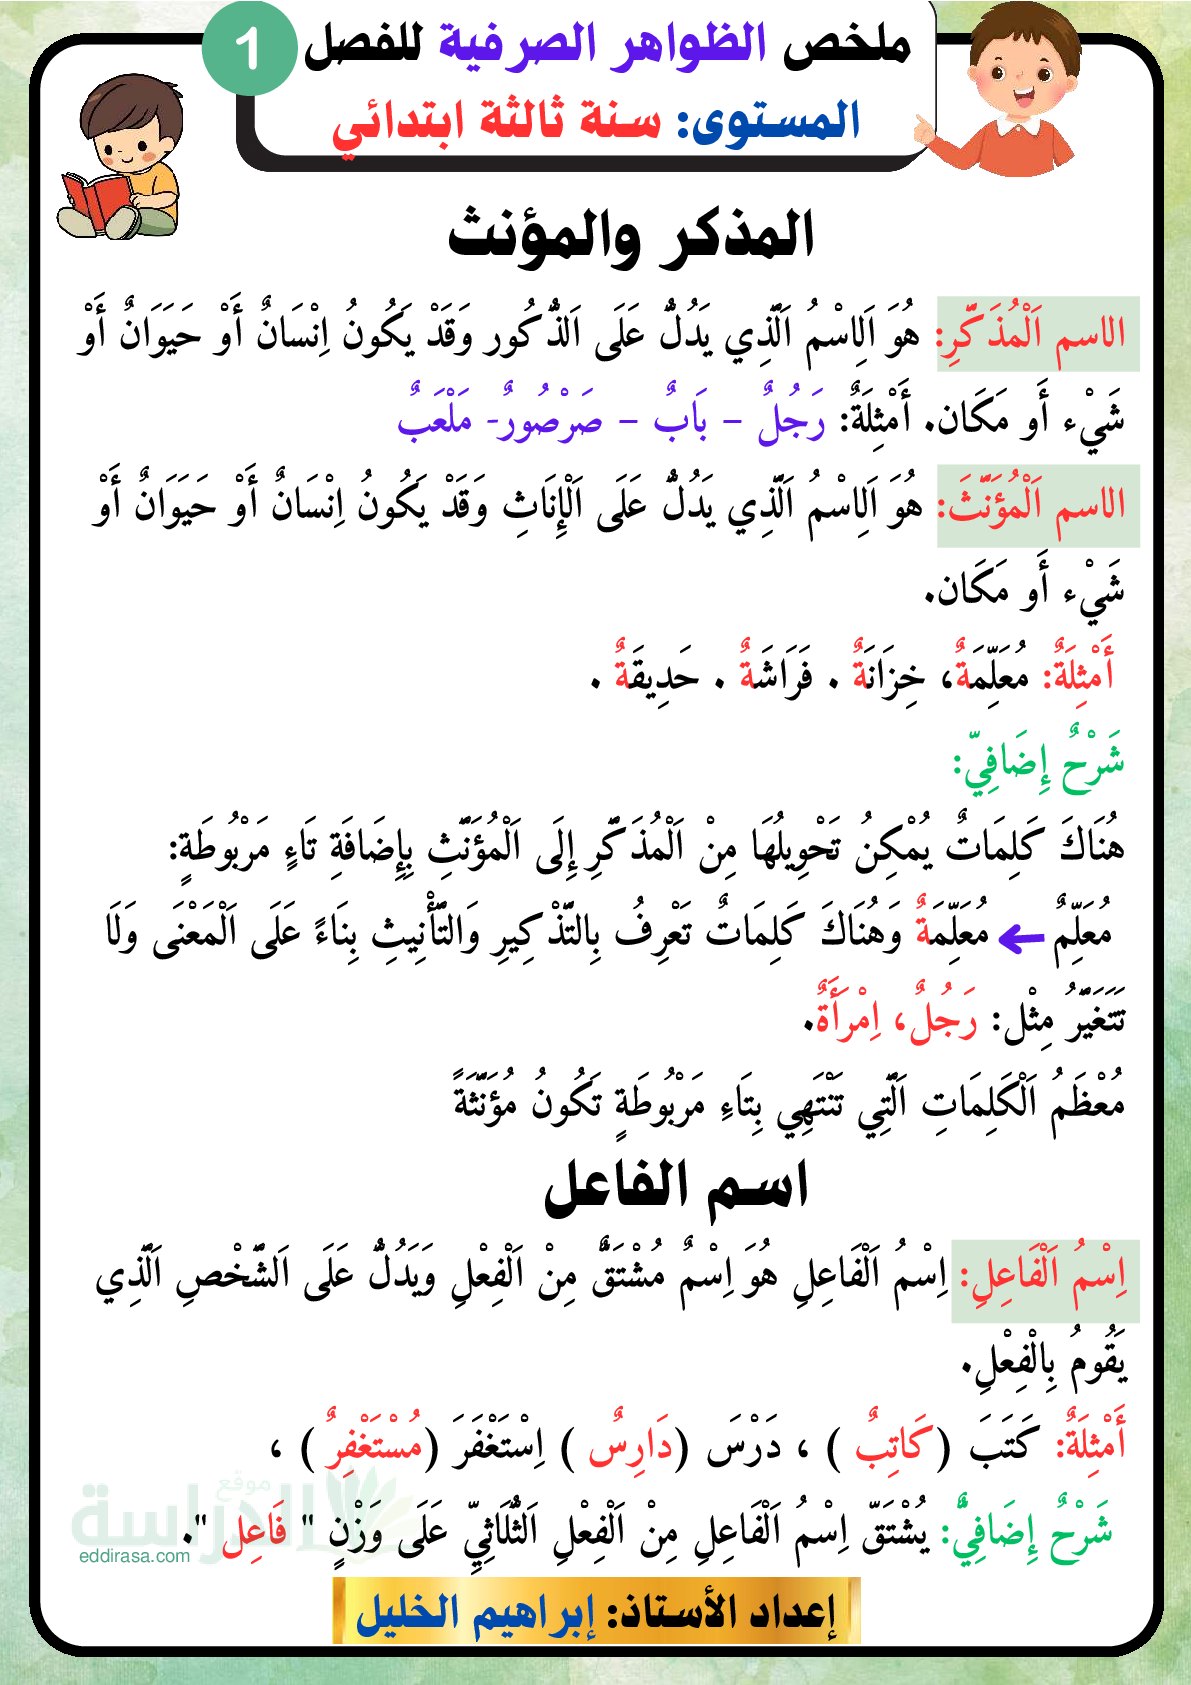 ملخص الظواهر الصرفية للفصل 1
المستوى: سنة ثالثة ابتدائي
المذكر والمؤنث
الاسم اَلْمُذَكَّرِ: هُوَ اَلِاسْمُ اَلَّذِي يَدُلُّ عَلَى اَلذُّكُور وَقَدْ يَكُونُ اِنْسَانٌ أَوْ حَيَوَانٌ أَوْ
شَيْء أَو مَكَان. أَمْثِلَةٌ: رَجُلٌ – بَابٌ – صَرْصُورٌ- مَلْعَبٌ
الاسم اَلْمُؤَنَّثَ: هُوَ اَلِاسْمُ اَلَّذِي يَدُلُّ عَلَى اَلْإِنَاثِ وَقَدْ يَكُونُ اِنْسَانٌ أَوْ حَيَوَانٌ أَوْ
شَيْء أَو مَكَان.
أَمْثِلَةٌ: مُعَلِّمَةٌ، خِزَانَةٌ . فَرَاشَةٌ . حَدِيقَةٌ .
شَرْحٌ إِضَافِيّ:
هُنَاكَ كَلِمَاتٌ يُمْكِنُ تَحْوِيلُهَا مِنْ اَلْمُذَكَّرِ إِلَى اَلْمُؤَنَّثِ بِإِضَافَةِ تَاءٍ مَرْبُوطَةٍ:
مُعَلِّمٌ ← مُعَلِّمَةٌ وَهُنَاكَ كَلِمَاتٌ تَعْرِفُ بِالتَّذْكِيرِ وَالتَّأْنِيثِ بِنَاءً عَلَى اَلْمَعْنَى وَلَا
تَتَغَيَّرُ مِثْل: رَجُلٌ، اِمْرَأَةٌ.
مُعْظَمُ اَلْكَلِمَاتِ اَلَّتِي تَنْتَهِي بِتَاءِ مَرْبُوطَةٍ تَكُونُ مُؤَنَّثَةً
اسم الفاعل
اِسْمُ اَلْفَاعِلِ: اِسْمُ اَلْفَاعِلِ هُوَ اِسْمٌ مُشْتَقٌّ مِنْ اَلْفِعْلِ وَيَدُلُّ عَلَى اَلشَّخْصِ اَلَّذِي
يَقُومُ بِالْفِعْلِ.
أَمْثِلَةٌ: كَتَبَ (كَاتِبٌ ) ، دَرْسَ (دَارِسٌ ) اِسْتَغْفَرَ (مُسْتَغْفِرٌ ) ،
شَرْحٌ إِضَافِيٌّ: يُشْتَقّ اِسْم اَلْفَاعِلِ مِنْ اَلْفِعْلِ اَلثُّلَاثِيِّ عَلَى وَزْنٍ " فَاعِل ".
موقع الدراسة
eddirasa.com
إعداد الأستاذ: إبراهيم الخليل